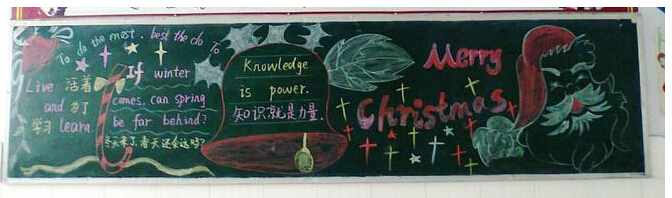 To do the most. best the do To
Live 活着
and 为了
学习 learn.
If winter
comes. can spring
be far behind?
冬天来了,春天还会远吗?
Knowledge
is power.
知识就是力量.
Merry
Christmas